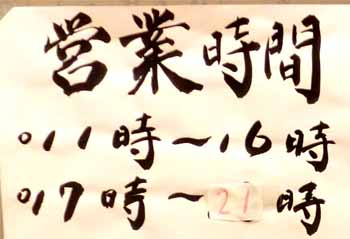 営業時間
○11時～16時
○17時～21時